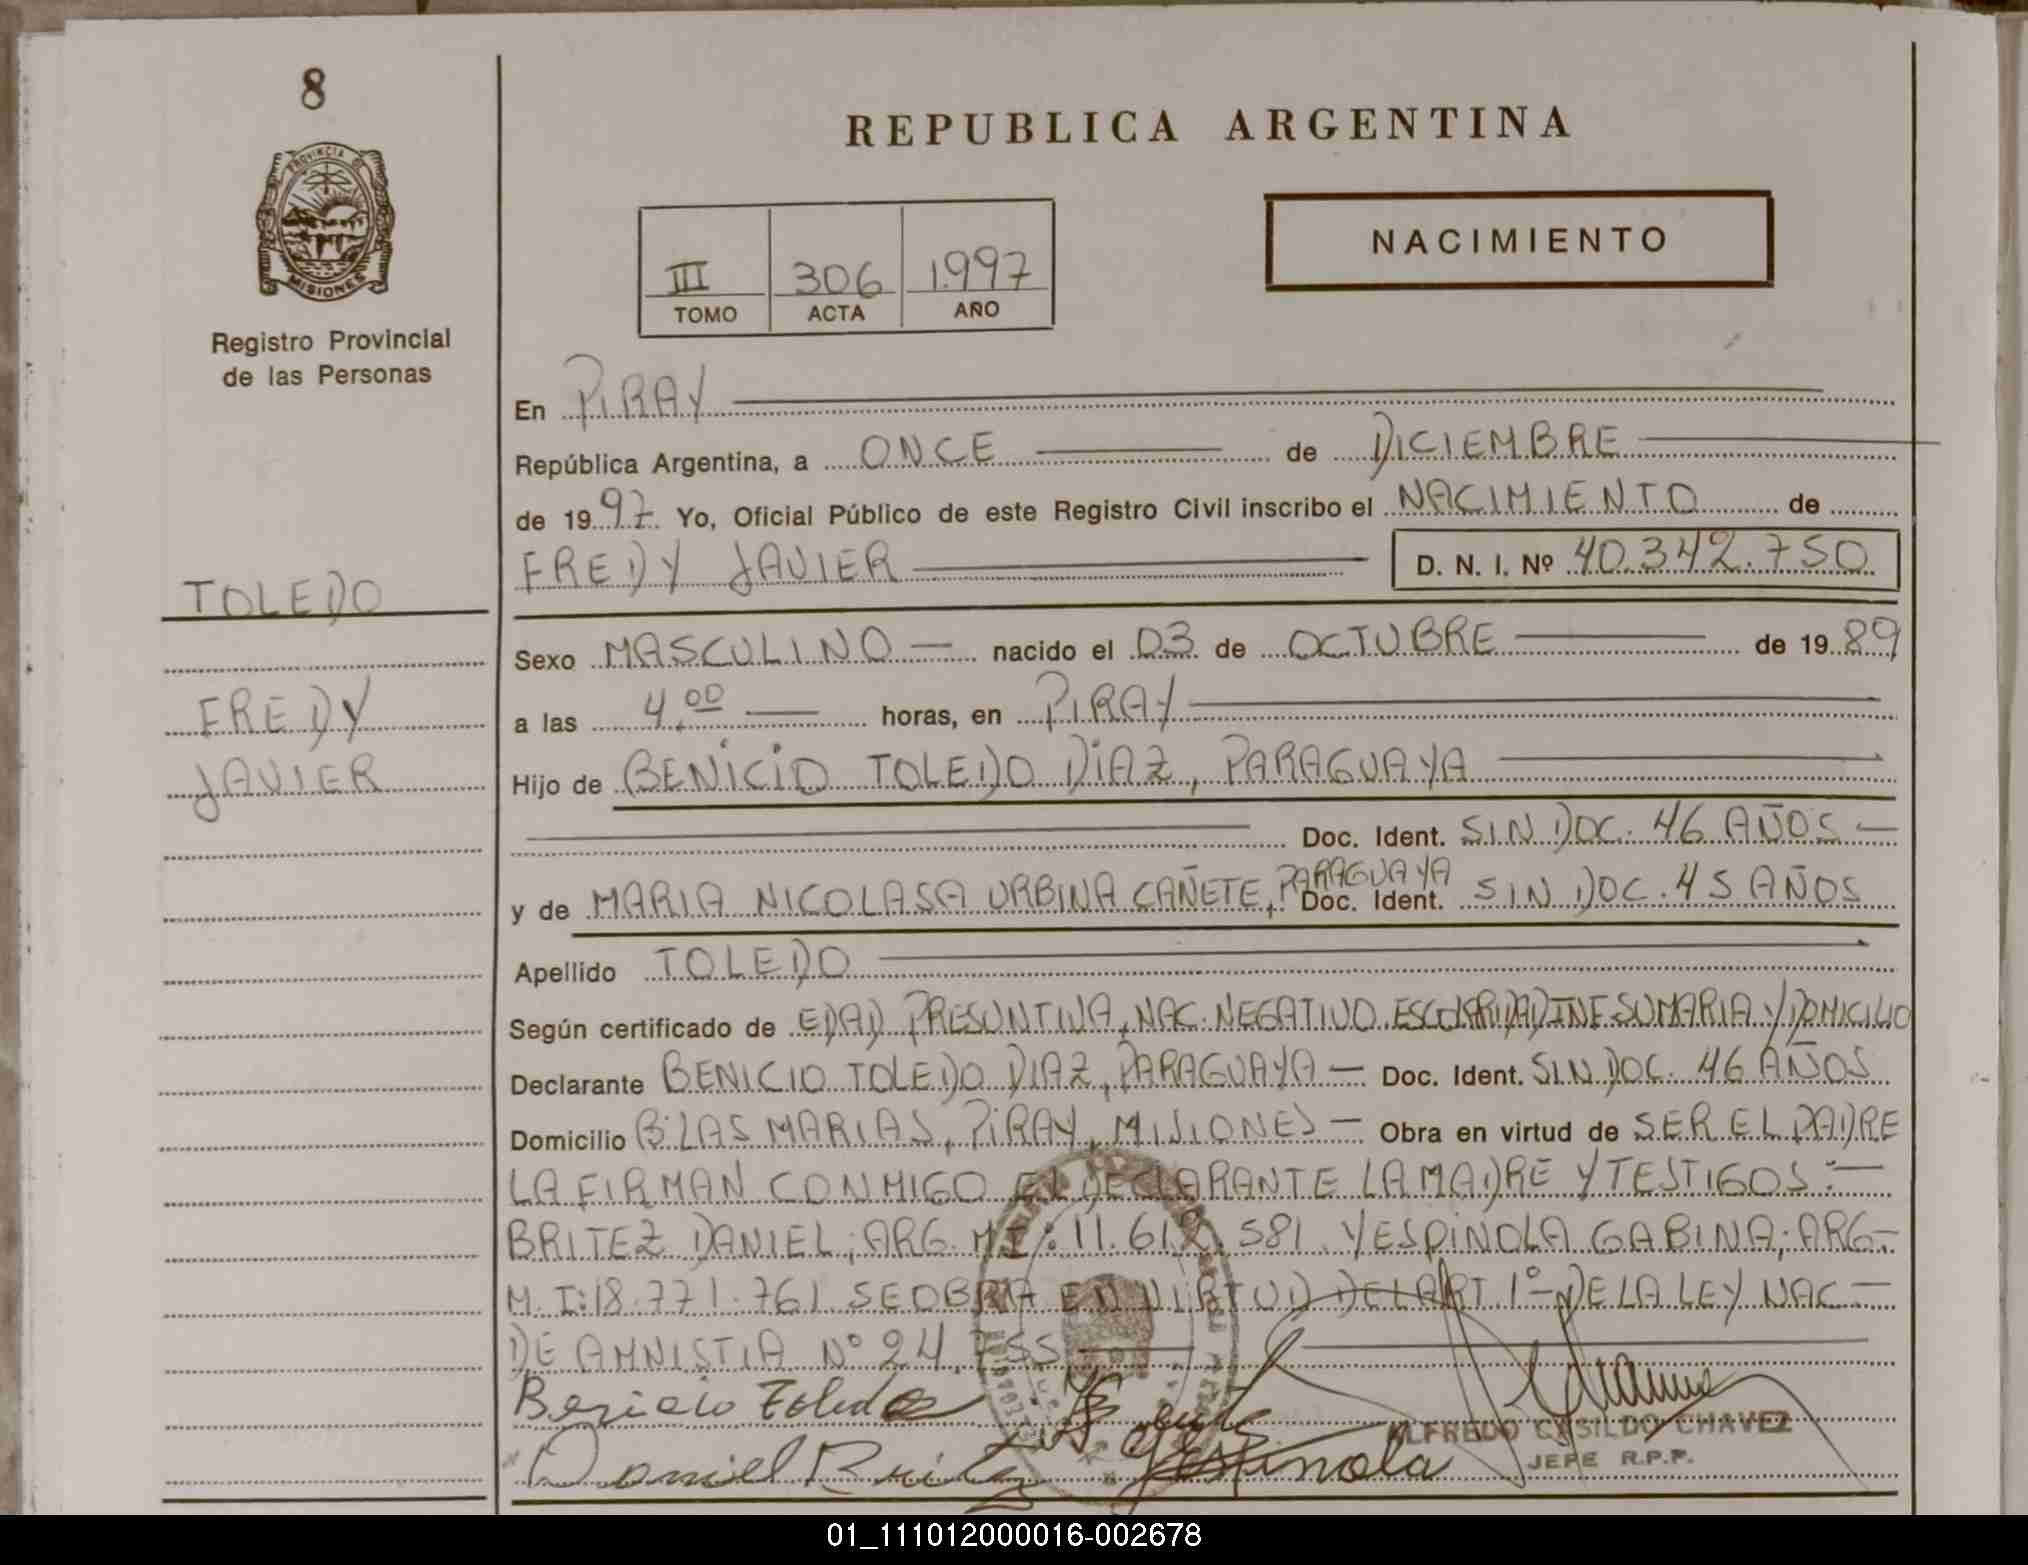 8
PROVINCIA DE
MISIONES
Registro Provincial
de las Personas
TOLEDO
FREDY
JAVIER
REPUBLICA ARGENTINA
NACIMIENTO
III 306 1.997
TOMO ACTA AÑO
En PIRAY
República Argentina, a ONCE de DICIEMBRE
de 1997. Yo, Oficial Público de este Registro Civil inscribo el NACIMIENTO de
FREDY JAVIER D. N. I. Nº 40.342.750
Sexo MASCULINO nacido el 03 de OCTUBRE de 1989
a las 4,00 horas, en PIRAY
Hijo de BENICIO TOLEDO DIAZ, PARAGUAYA
Doc. Ident. SIN DOC. 46 AÑOS
y de MARIA NICOLASA URBINA CAÑETE, PARAGUAYA Doc. Ident. SIN DOC. 45 AÑOS
Apellido TOLEDO
Según certificado de EDAD PRESUNTIVA, NAC. NEGATIVO ESCOLARIDAD INF. SUMARIA Y DOMICILIO
Declarante BENICIO TOLEDO DIAZ, PARAGUAYA Doc. Ident. SIN DOC. 46 AÑOS
Domicilio Bº LAS MARIAS, PIRAY, MISIONES Obra en virtud de SER EL PADRE
LA FIRMAN CONMIGO EL DECLARANTE LA MADRE Y TESTIGOS:
BRITEZ DANIEL; ARG. M I: 11.612.581. Y ESPINOLA GABINA; ARG-
M. I: 18.771.761 SE OBRA EN VIRTUD DEL ART 1º DE LA LEY NAC
DE AMNISTIA Nº 24.755
Benicio Toledo
Daniel Espinola
ALFREDO CASILDO CHAVEZ
JEFE R.P.P.
01_111012000016-002678